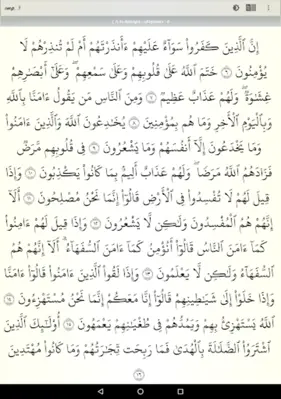 إِنَّ ٱلَّذِينَ كَفَرُوا۟ سَوَآءٌ عَلَيْهِمْ ءَأَنذَرْتَهُمْ أَمْ لَمْ تُنذِرْهُمْ لَا
يُؤْمِنُونَ ٦ خَتَمَ ٱللَّهُ عَلَىٰ قُلُوبِهِمْ وَعَلَىٰ سَمْعِهِمْ ۖ وَعَلَىٰٓ أَبْصَٰرِهِمْ
غِشَٰوَةٌ ۖ وَلَهُمْ عَذَابٌ عَظِيمٌ ٧ وَمِنَ ٱلنَّاسِ مَن يَقُولُ ءَامَنَّا بِٱللَّهِ
وَبِٱلْيَوْمِ ٱلْءَاخِرِ وَمَا هُم بِمُؤْمِنِينَ ٨ يُخَٰدِعُونَ ٱللَّهَ وَٱلَّذِينَ ءَامَنُوا۟
وَمَا يَخْدَعُونَ إِلَّآ أَنفُسَهُمْ وَمَا يَشْعُرُونَ ٩ فِى قُلُوبِهِم مَّرَضٌ
فَزَادَهُمُ ٱللَّهُ مَرَضًا ۖ وَلَهُمْ عَذَابٌ أَلِيمٌۢ بِمَا كَانُوا۟ يَكْذِبُونَ ١٠ وَإِذَا
قِيلَ لَهُمْ لَا تُفْسِدُوا۟ فِى ٱلْأَرْضِ قَالُوٓا۟ إِنَّمَا نَحْنُ مُصْلِحُونَ ١١ أَلَآ
إِنَّهُمْ هُمُ ٱلْمُفْسِدُونَ وَلَٰكِن لَّا يَشْعُرُونَ ١٢ وَإِذَا قِيلَ لَهُمْ ءَامِنُوا۟
كَمَآ ءَامَنَ ٱلنَّاسُ قَالُوٓا۟ أَنُؤْمِنُ كَمَآ ءَامَنَ ٱلسُّفَهَآءُ ۗ أَلَآ إِنَّهُمْ هُمُ
ٱلسُّفَهَآءُ وَلَٰكِن لَّا يَعْلَمُونَ ١٣ وَإِذَا لَقُوا۟ ٱلَّذِينَ ءَامَنُوا۟ قَالُوٓا۟ ءَامَنَّا
وَإِذَا خَلَوْا۟ إِلَىٰ شَيَٰطِينِهِمْ قَالُوٓا۟ إِنَّا مَعَكُمْ إِنَّمَا نَحْنُ مُسْتَهْزِءُونَ ١٤
ٱللَّهُ يَسْتَهْزِئُ بِهِمْ وَيَمُدُّهُمْ فِى طُغْيَٰنِهِمْ يَعْمَهُونَ ١٥ أُو۟لَٰٓئِكَ ٱلَّذِينَ
ٱشْتَرَوُا۟ ٱلضَّلَٰلَةَ بِٱلْهُدَىٰ فَمَا رَبِحَت تِّجَٰرَتُهُمْ وَمَا كَانُوا۟ مُهْتَدِينَ
١٦